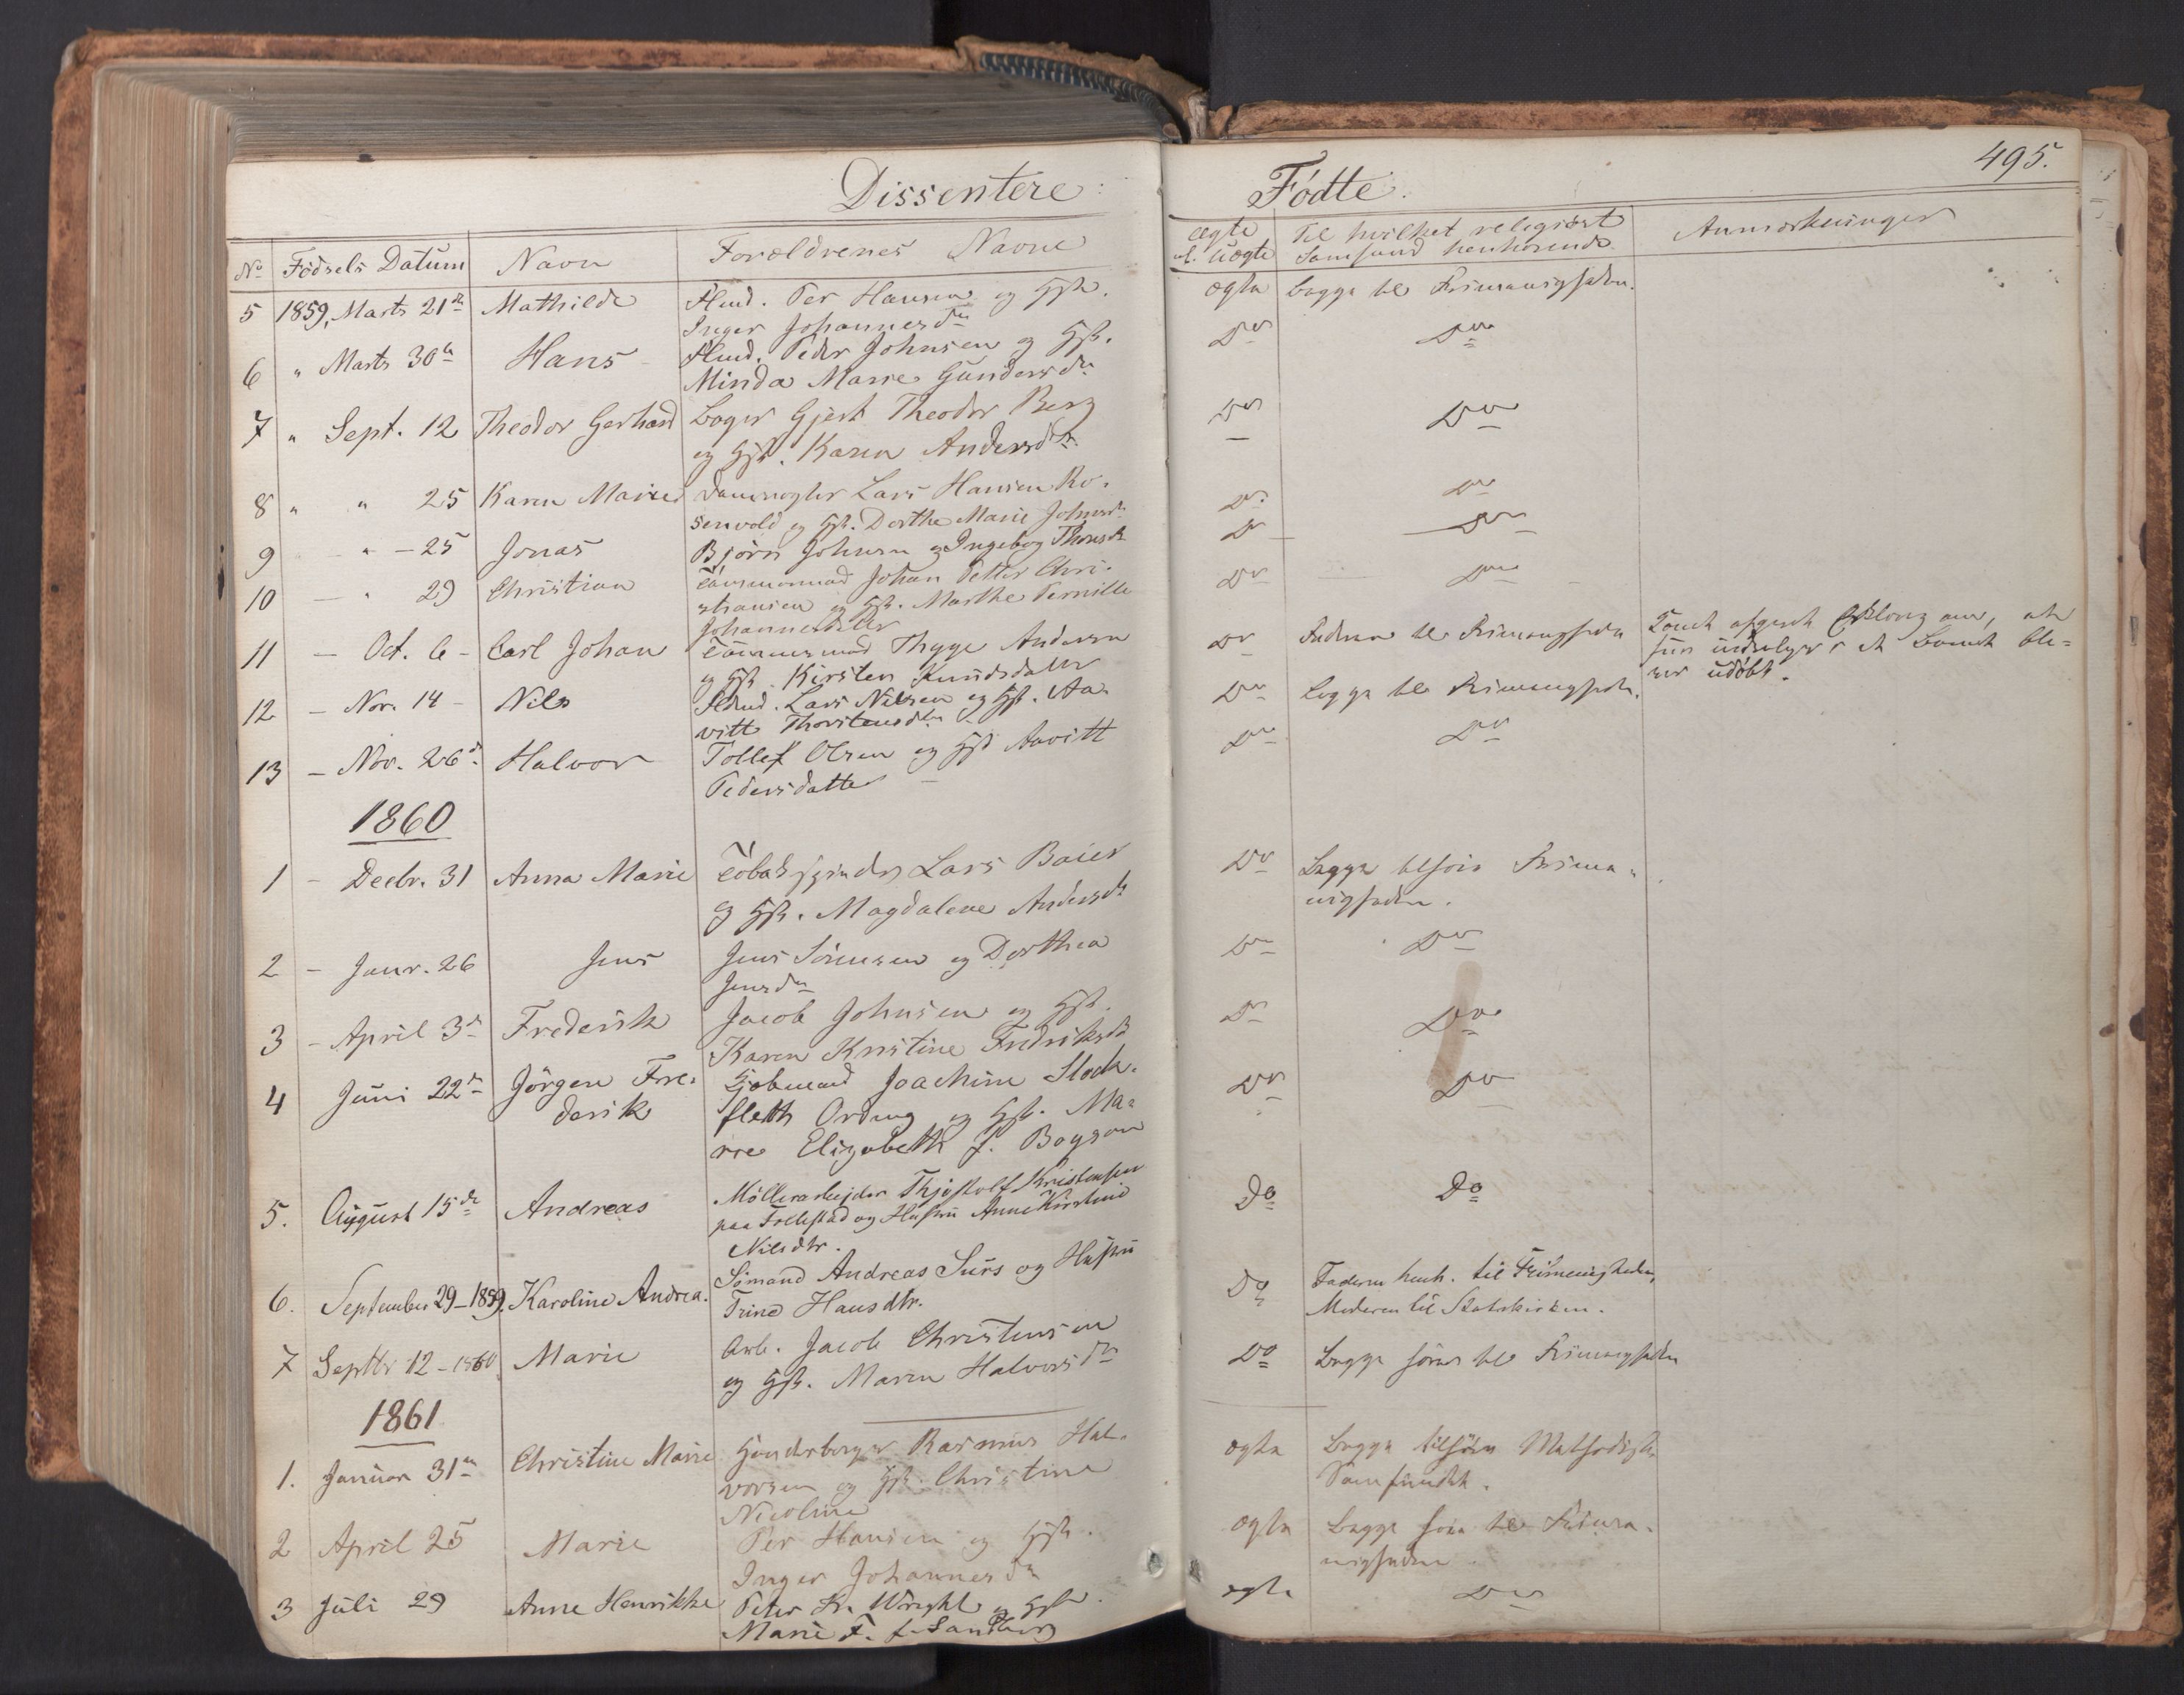 Dissentere:
Fødte.
495.
No Fødsels Datum Navn Forældrenes Navne
ægte
el. uægte
Til hvilket religiøst
Samfund henhørende
Anmærkninger
5 1859, Marts 21de Mathilde Per Hansen og Hst. ægte begge til Frimenigheden.
Inger Johannesdtr
6 " Marts 30te Hans Peder Johnsen og Hst. Do Do
Minda Marie Gundersdtr
7 " Sept. 12 Theodor Gerhard Bager Gjert Theodor Berg Do Do
og Hst. Karen Andersdtr
8 " " 25 Karen Marie Lars Hansen Ro- Do Do
senvold og Hst. Dorthe Marie Johnsdtr
9 " - 25 Jonas Bjørn Johnsen og Ingeborg Do Do
10 — " 29 Christian Tømmermand Johan Petter Chri- Do Do
stiansen og Hst. Marthe Pernille
Johannesdatter
11 — Oct. 6 - Carl Johan Tømmermand Thyge Andersen Do Faderen til Frimenigheden
og Hst. Kirsten Knudsdatter
at Barnet bli-
ver udøbt.
12 — Nov. 14 - Nils Lars Nilsen og Hst. Aa- Do begge til Frimenigheden.
vitt Thorstensdtr
13 — Nov. 26de Halvor Tollef Olsen og Hst Aavitt Do Do
Pedersdatter
1860
1 - Decbr. 31 Anna Marie Tobakspinder Lars Baier Do Begge tilhøre Frime-
og Hst. Magdalene Andersdtr nigheden.
2 - Janr. 26 Jens Jens Sørensen og Dorthea Do Do
Jensdtr
3 - April 3de Frederik Jacob Johnsen og Hst. Do Do
Karen Kristine Fredriksdtr
4 Juni 22de Jørgen Fre- Joachim Stock- Do Do
derik fleth Ording og Hst. Ma-
rie Elizabeth f. Boyson
5. August 15de Andreas Møllerarbejder Thjøstolf Kristensen Do Do
paa Follestad og Hustru Anne Kirstine
Nilsdtr.
6. September 29-1859. Karoline Andrea. Sømand Andreas Surs og Hustru Do Faderen henh. til Frimenigheden,
Trine Hansdtr. Moderen til Statskirken.
7 Septbr 12-1860 Marie Arb. Jacob Christensen Do Begge høre til Frimenigheden
og Hst. Maren Halvorsdtr
1861
1. Januar 31te Christine Marie Rasmus Hal- ægte Begge tilhøre Methodist-
vorsen og Hst. Christine Samfundet.
Nicoline
2 April 25 Marie Per Hansen og Hst. ægte Begge høre til Frime-
Inger Johannesdtr nigheden
3 Juli 29 Anne Henrikke Peter Wright og Hst. ægte Do
Marie F. f. Sandberg